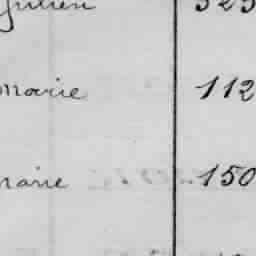 Julien 325
marie 112
marie 150